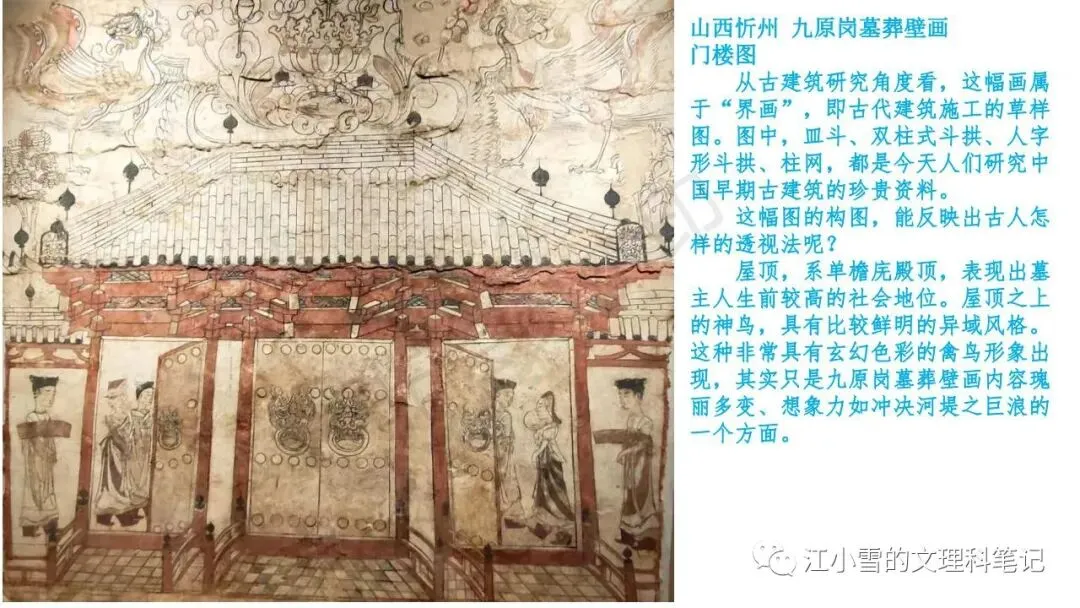 山西忻州 九原岗墓葬壁画
门楼图
从古建筑研究角度看，这幅画属
于“界画”，即古代建筑施工的草样
图。图中，皿斗、双柱式斗拱、人字
形斗拱、柱网，都是今天人们研究中
国早期古建筑的珍贵资料。
这幅图的构图，能反映出古人怎
样的透视法呢？
屋顶，系单檐庑殿顶，表现出墓
主人生前较高的社会地位。屋顶之上
的神鸟，具有比较鲜明的异域风格。
这种非常具有玄幻色彩的禽鸟形象出
现，其实只是九原岗墓葬壁画内容瑰
丽多变、想象力如冲决河堤之巨浪的
一个方面。
江小雪的文理科笔记